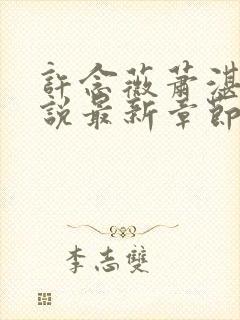 許念薇蕭湛
說最新章節
李志雙